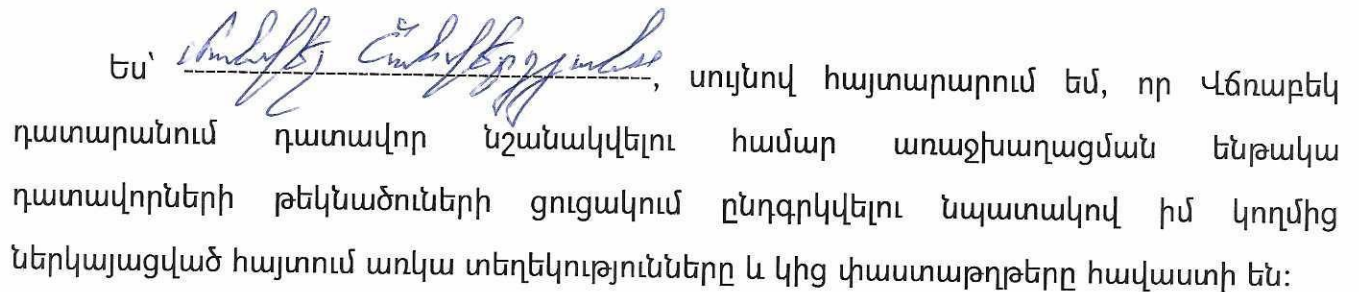 Ես՝ , սույնով հայտարարում եմ, որ Վճռաբեկ
դատարանում դատավոր նշանակվելու համար առաջխաղացման ենթակա
դատավորների թեկնածուների ցուցակում ընդգրկվելու նպատակով իմ կողմից
ներկայացված հայտում առկա տեղեկությունները և կից փաստաթղթերը հավաստի են: